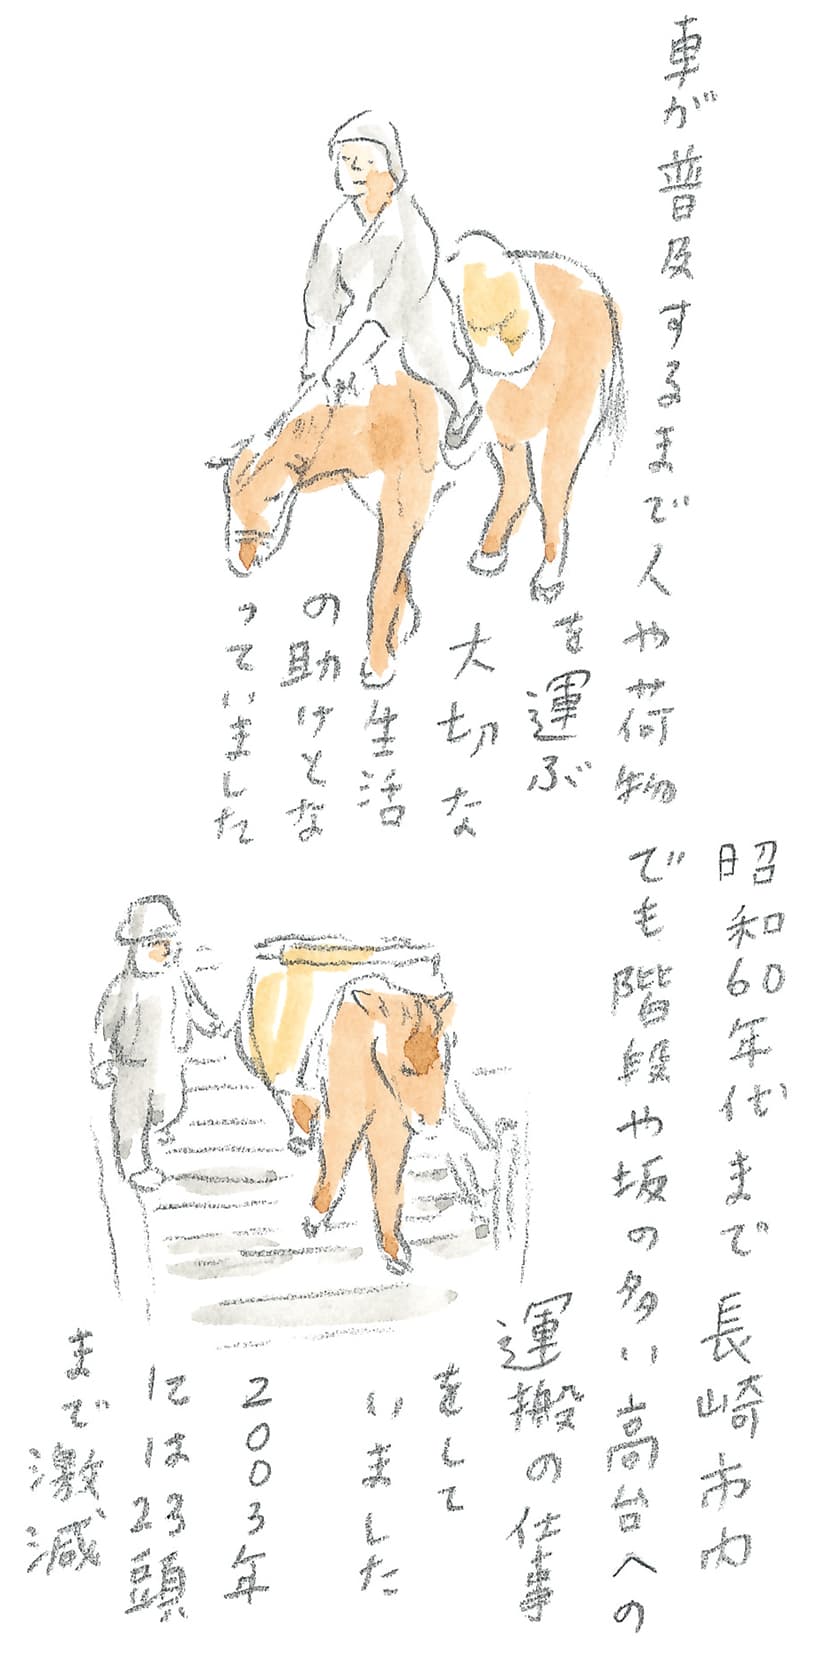 車が普及するまで人や荷物
を運ぶ
大切な
生活
の助けとな
っていました
昭和60年代まで長崎市内
でも階段や坂の多い高台への
運搬の仕事
をして
いました
2003年
には23頭
まで激減